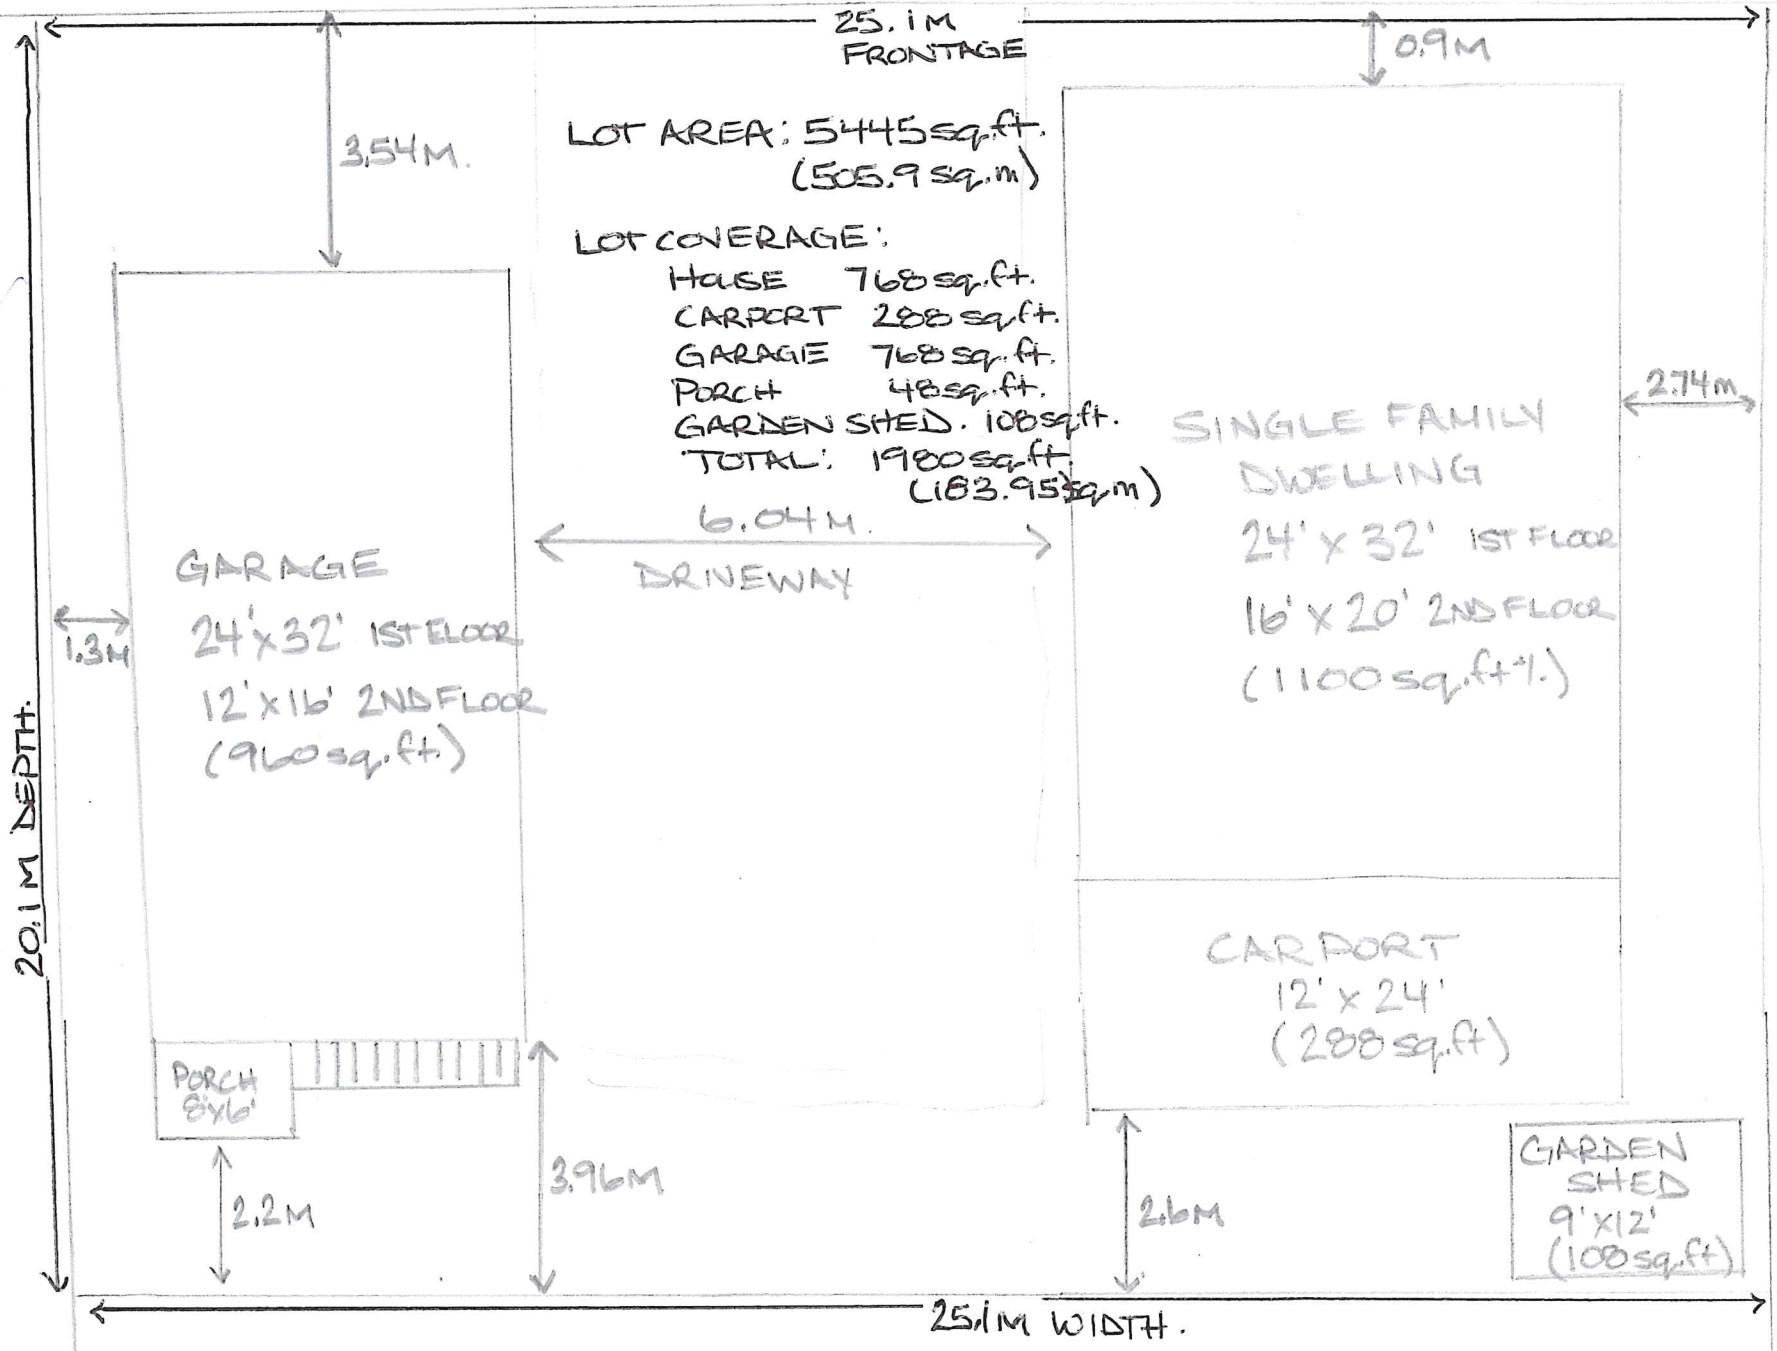 25.1M
FRONTAGE
0.9M
3.54M.
LOT AREA: 5445 sq.ft.
(505.9 sq.m)
LOT COVERAGE:
HOUSE 768 sq.ft.
CARPORT 288 sq.ft.
GARAGE 768 sq.ft.
PORCH 48 sq.ft.
GARDEN SHED. 108 sq.ft.
TOTAL: 1980 sq.ft.
(183.95 sq.m)
6.04M.
DRIVEWAY
2.74m
SINGLE FAMILY
DWELLING
24' x 32' 1ST FLOOR
16' x 20' 2ND FLOOR
(1100 sq.ft +/.)
GARAGE
24' x 32' 1ST FLOOR
12' x 16' 2ND FLOOR
(960 sq.ft.)
1.3M
20.1M DEPTH.
CARPORT
12' x 24'
(288 sq.ft)
PORCH
8'x6'
2.2M
3.96M
2.6M
GARDEN
SHED
9' x 12'
(108 sq.ft)
25.1M WIDTH.